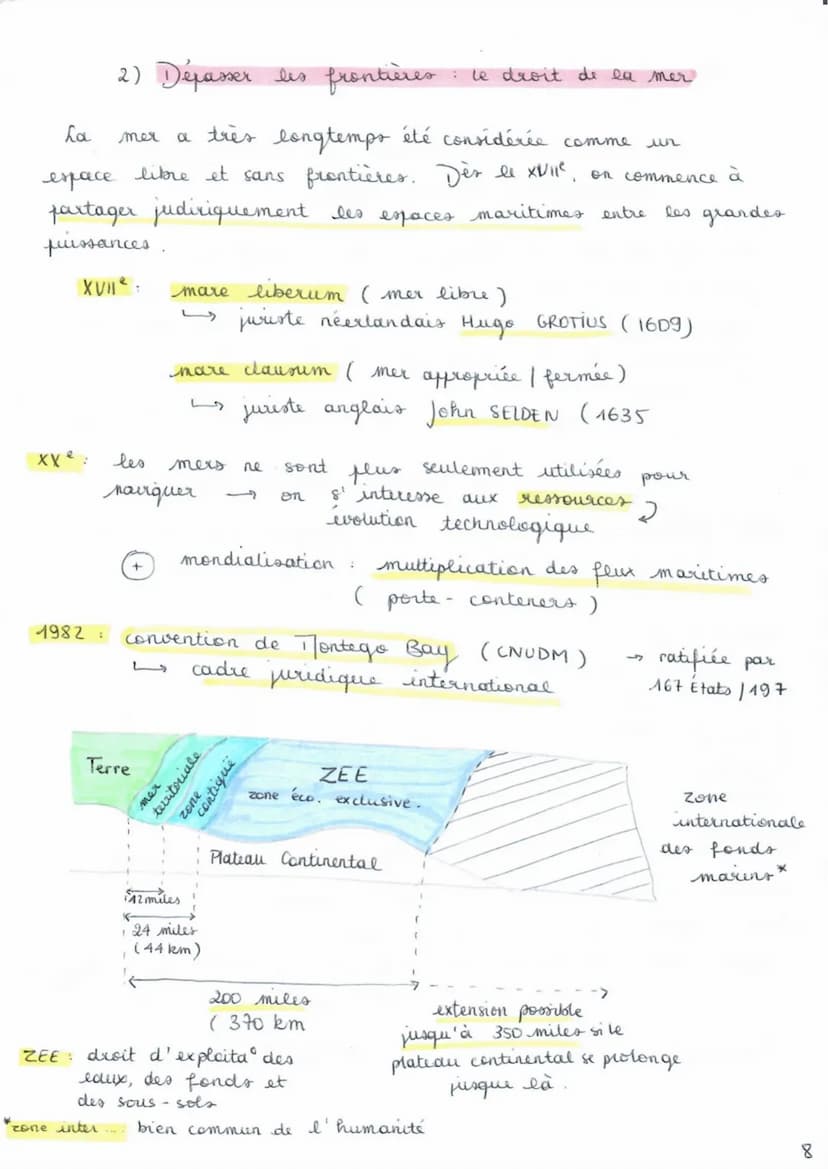 2) Dépasser les frontières : le droit de la mer
La mer a très longtemps été considérée comme un
espace libre et sans frontières. Dès le XVIIe, on commence à
partager judiriquement les espaces maritimes entre les grandes
puissances.
XVIIe : mare liberum ( mer libre )
↳ juriste néerlandais Hugo GROTIUS ( 1609 )
mare clausum ( mer appropriée / fermée )
↳ juriste anglais John SELDEN ( 1635
XXe : les mers ne sont plus seulement utilisées pour
naviguer → on s'interesse aux ressources
évolution technologique
+ mondialisation : multiplication des flux maritimes
( porte - conteners )
1982 : convention de Montego Bay ( CNUDM ) → ratifiée par
↳ cadre juridique international 167 États / 197
Terre
mer territoriale
zone contiguë
ZEE
zone éco. exclusive.
Plateau Continental
zone
internationale
des fonds
marins*
12 miles
24 miles
( 44 km )
200 miles
( 370 km
extension possible
jusqu'à 350 miles si le
plateau continental se prolonge
jusque là.
ZEE : droit d'exploita° des
eaux, des fonds et
des sous - sols
*zone inter ... bien commun de l'humanité
8